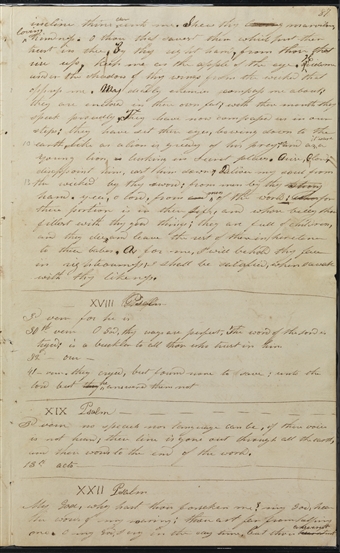 37
incline thine ear unto me. Shew thy marvelous
loving kindness. O thou that savest thou which put their
trust in thee, from those that
rise up, keep me as the apple of the eye, hide me
under the shadow of thy wings from the wicked that
oppress me. My deadly enemies compass me about;
they are inclose in their own fat; with their mouth they
speak proudly, They have now compassed us in our
steps; they have set their eyes bowing down to the
earth, like as a lion is greedy of his prey, and as a
young lion lurking in secret places. Arise, O Lord
disappoint him, cast him down; Deliver my soul from
13 the wicked by thy sword; from men by thy strong
hand, yea, O lord, from of the world;
their portion is in this life, and whose belly thou
fillest with thy good things; they are full of children,
and they die, and leave the rest of their inheritance
to their babes. As for me, I will behold thy face
in righteousness; I shall be satisfied, when I awake
with thy likeness.
XVIII Psalm
3d verse O he is
30th verse O God, thy way are perfect, The word of the Lord is
tryed; is a buckler to all those who trust in him
32 — our —
41 — verse, they cryed, but found none to save; unto the
lord but answered them not
XIX Psalm
3d verse no speech nor language can be, if their voice
is not heard, their line is gone out through all the earth,
and their words to the end of the world.
13th acts
XXII Psalm
My God, why hast thou forsaken me? my God, hear
the words of my roaring; thou art far from helping
me. O my God I cry in the day time, but thou